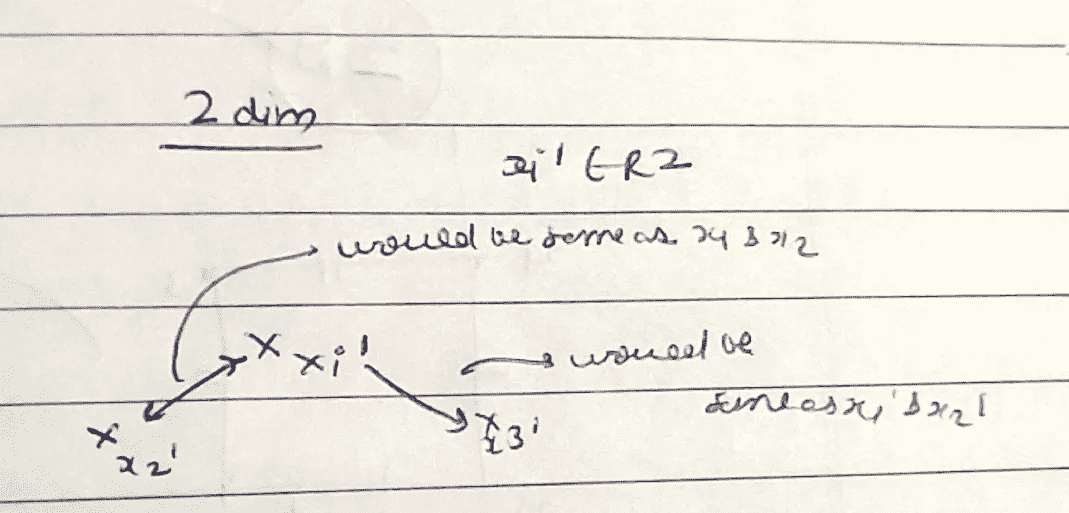 2 dim
xi' ∈ R2
would be same as x1 & x2
x xi' would be
same as x1' & x2'
x x3'
x x2'